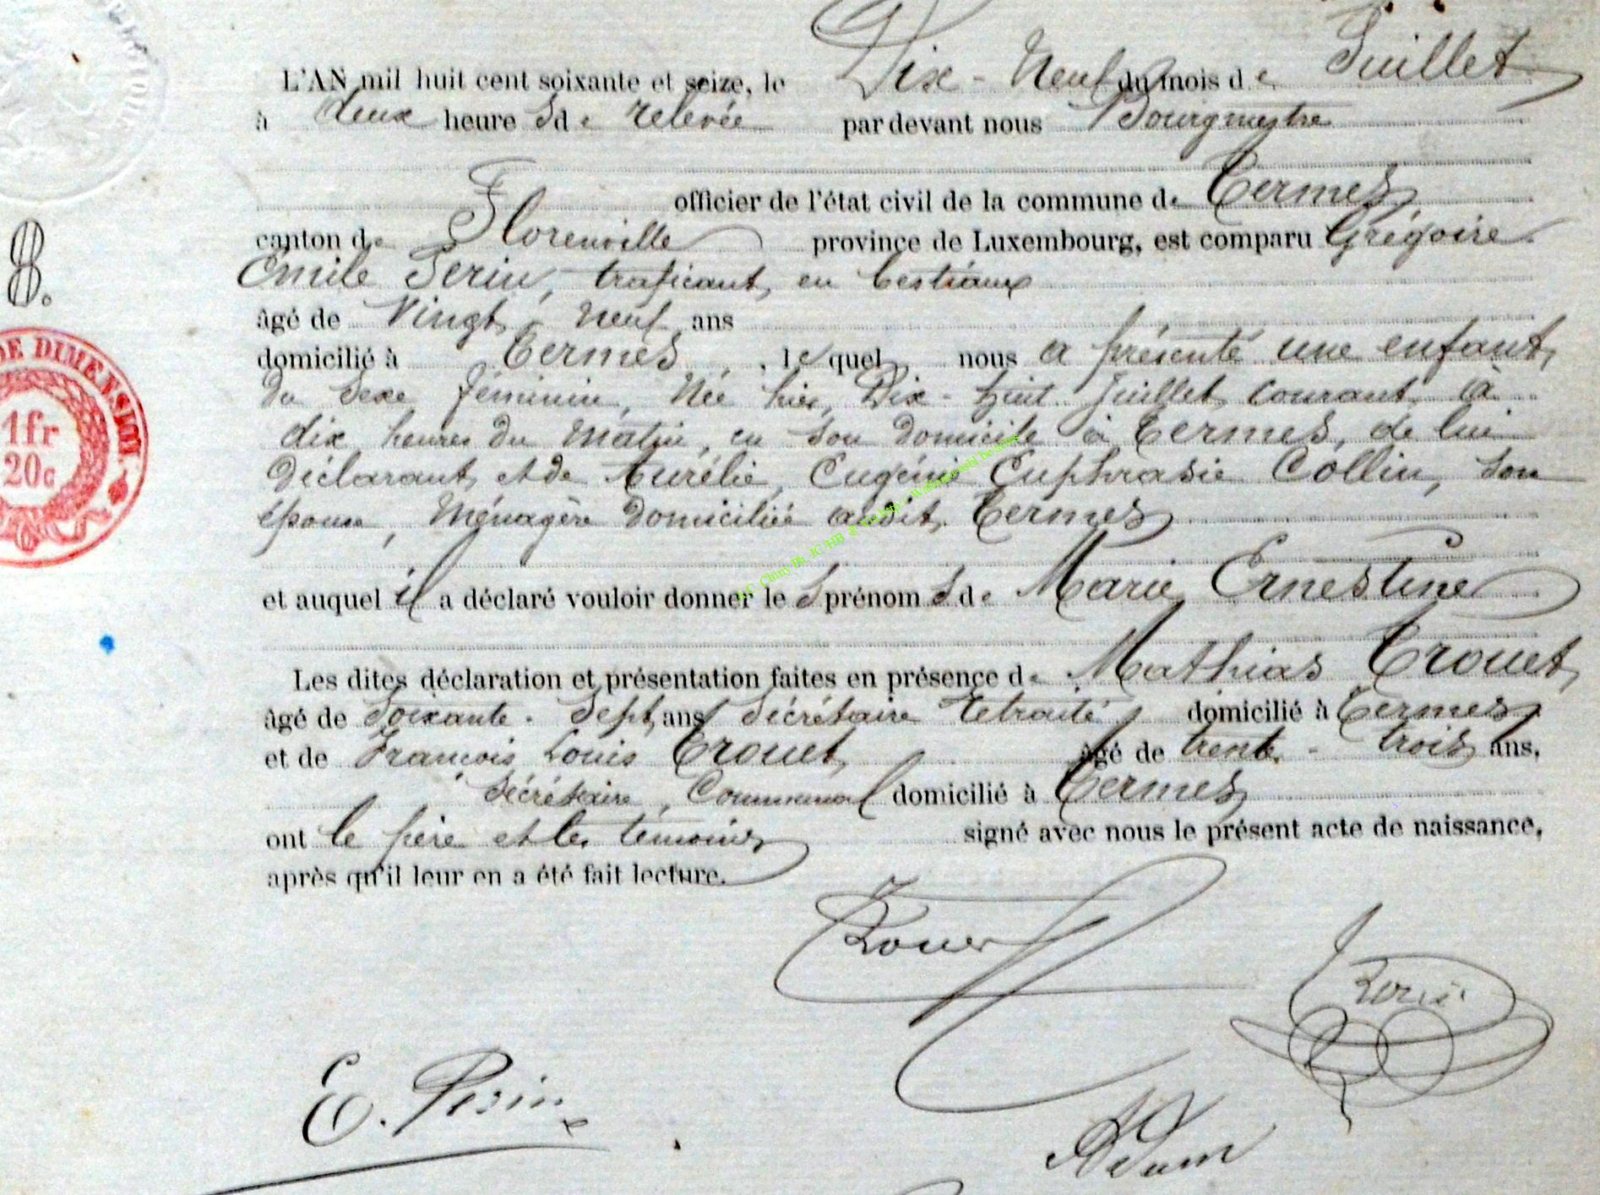 L'AN mil huit cent soixante et seize, le Dix-Neuf du mois de Juillet
à deux heure s de relevée par devant nous Bourgmestre
officier de l'état civil de la commune de Termes
canton de Florenville province de Luxembourg, est comparu Grégoire
8.
Emile Perin, traficant, en bestiaux
âgé de Vingt-neuf ans
DE DIMENSION.
domicilié à Termes, lequel nous a présenté une enfant,
du sexe féminin, Née hier, Dix-huit Juillet courant, à
1fr
dix heures du matin, en son domicile à Termes, de lui
20c
déclarant, et de Aurélie, Eugénie Euphrasie Collin, son
épouse, Ménagère domiciliée audit, Termes
et auquel il a déclaré vouloir donner le s prénom s de Marie Ernestine
Les dites déclaration et présentation faites en présence de Mathias Trouet,
âgé de Soixante-Sept, ans Secrétaire retraité domicilié à Termes
et de François Louis Trouet, âgé de trente-trois ans,
Secrétaire, Communal domicilié à Termes
ont le père et les témoins signé avec nous le présent acte de naissance,
après qu'il leur en a été fait lecture.
Trouet
E. Perin
Adam